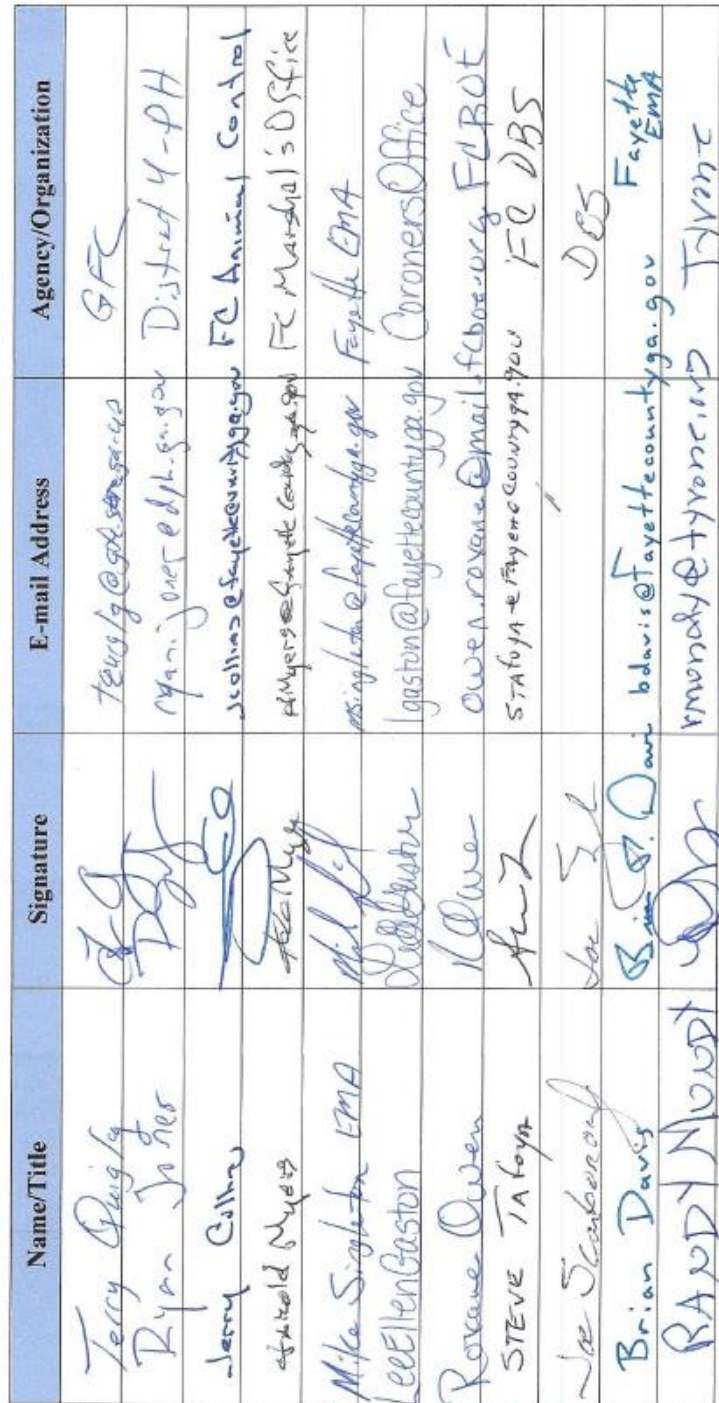 Name/Title Signature E-mail Address Agency/Organization
Terry Quigley GFC
Ryan Jones District 4-PH
Jerry Collins jcollins@fayettecountyga.gov FC Animal Control
Myers FC Marshal's Office
Mike Singleton EMA msingleton@fayettecountyga.gov Fayette EMA
LeeEllenGaston LeeEGaston lgaston@fayettecountyga.gov CoronersOffice
Roxane Owen ROwen owen.roxane@mail.fcboe.org FCBOE
STEVE TAfoya STAfoya@FayetteCountyga.gov FC DBS
Joe Scarborough Joe DBS
Brian Davis bdavis@fayettecountyga.gov Fayette EMA
RANDY MUNDY rmundy@tyrone.org Tyrone